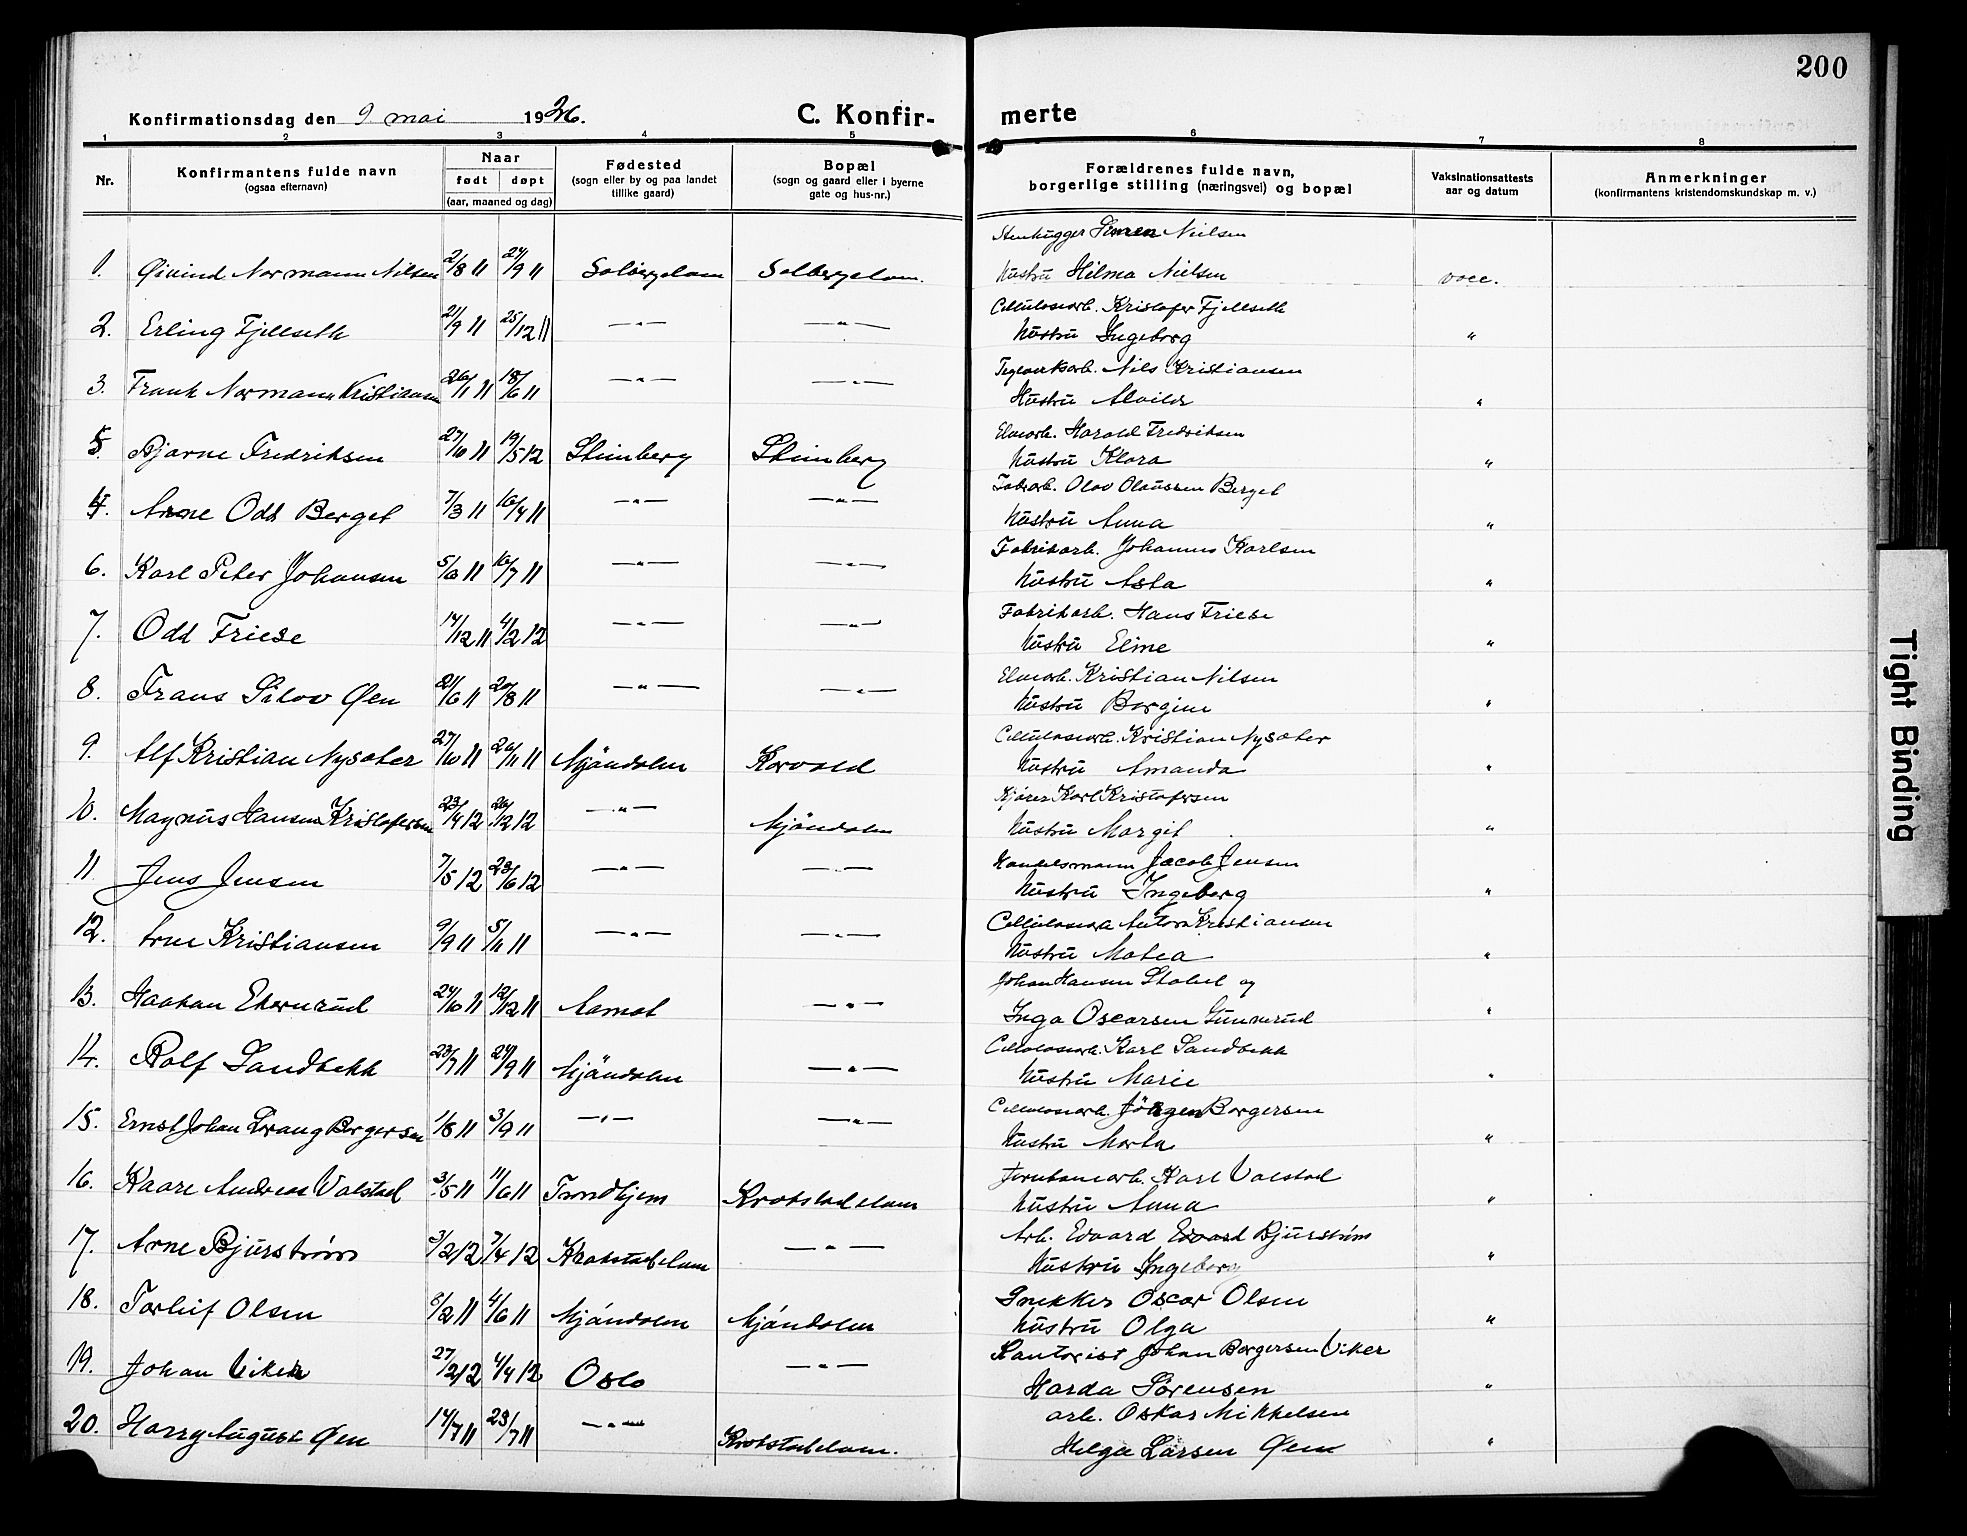 200
Konfirmationsdag den 9 mai 1926.
C. Konfir-
merte
1 2 3 4 5 6 7 8
Nr.
Konfirmantens fulde navn
(ogsaa efternavn)
Naar
født døpt
(aar, maaned og dag)
Fødested
(sogn eller by og paa landet
tillike gaard)
Bopæl
(sogn og gaard eller i byerne
gate og hus-nr.)
Forældrenes fulde navn,
borgerlige stilling (næringsvei) og bopæl
Vaksinationsattests
aar og datum
Anmerkninger
(konfirmantens kristendomskundskap m. v.)
Stenhugger Simen Nielsen
1. Øivind Normann Nilsen 2/8 11 24/9 11 Solbergelven Solbergelven. Hustru Hilma Nielsen vacc.
Cellulosearb. Kristofer Fjellseth
2. Erling Fjellseth 21/9 11 25/12 11 —„— —„— Hustru Ingeborg „
Teglverksarb. Nils Kristiansen
3. Frank Normann Kristiansen 26/1 11 18/6 11 —„— —„— Hustru Alvilde „
Elvearb. Harald Fredriksen
5. Bjarne Fredriksen 27/10 11 19/5 12 Stenberg Stenberg Hustru Klara „
Fabrarb. Olav Olaussen Berget
4. Arne Odd Berget 7/3 11 16/4 11 —„— —„— Hustru Anna „
Fabrikarb. Johannes Karlsen
6. Karl Peter Johansen 16/7 11 —„— —„— Hustru Asta „
Fabrikarb. Hans Friese
7. Odd Friese 14/12 11 4/2 12 —„— —„— Hustru Eline „
Elvearb. Kristian Nilsen
8. Frans Øen 21/6 11 20/8 11 —„— —„— Hustru Borgine „
Cellulosearb. Kristian Nysæter
9. Alf Kristian Nysæter 27/10 11 26/11 11 Mjöndalen Korvald Hustru Amanda „
Kjører Karl Kristofersen
10. Magnus Hansen Kristofersen 23/4 12 26/12 12 —„— Mjöndalen Hustru Margit „
Handelsmann Jacob Jensen
11. Jens Jensen 7/5 12 23/6 12 —„— —„— Hustru Ingeborg „
Cellulosearb Anton Kristiansen
12. Arne Kristiansen 9/9 11 5/11 11 —„— —„— Hustru Matea „
Johan Hansen Stabel og
13. Haakan Ekornrud 24/10 11 12/12 11 Aamot —„— Inga Oscarsen Gunnerud „
Cellulosearb. Karl Sandbekk
14. Rolf Sandbekk 23/7 11 24/9 11 Mjöndalen —„— Hustru Marie „
Cellulosearb. Jörgen Borgersen
15. Ernst Johan Borgersen 1/8 11 3/9 11 —„— —„— Hustru Marta „
Jernbanearb. Karl Valstad
16. Kaare Andreas Valstad 3/5 11 11/6 11 Trondhjem Krokstadelven Hustru Anna „
Arb. Edvard Edvard Bjurstrøm
17. Arne Bjurstrøm 3/2 12 7/4 12 Krokstadelven —„— Hustru Ingeborg „
Snekker Oscar Olsen
18. Torleif Olsen 8/2 11 4/6 11 Mjöndalen Mjöndalen Hustru Olga „
Kantorist Johan Borgersen Viker
19. Johan Viker 27/2 12 4/4 12 Oslo —„— Harda Sörensen „
arb. Oskar Mikkelsen
20. Harry August Øen 14/7 11 23/7 11 —„— Krokstadelven. Helga Larsen Øen „
Tight Binding